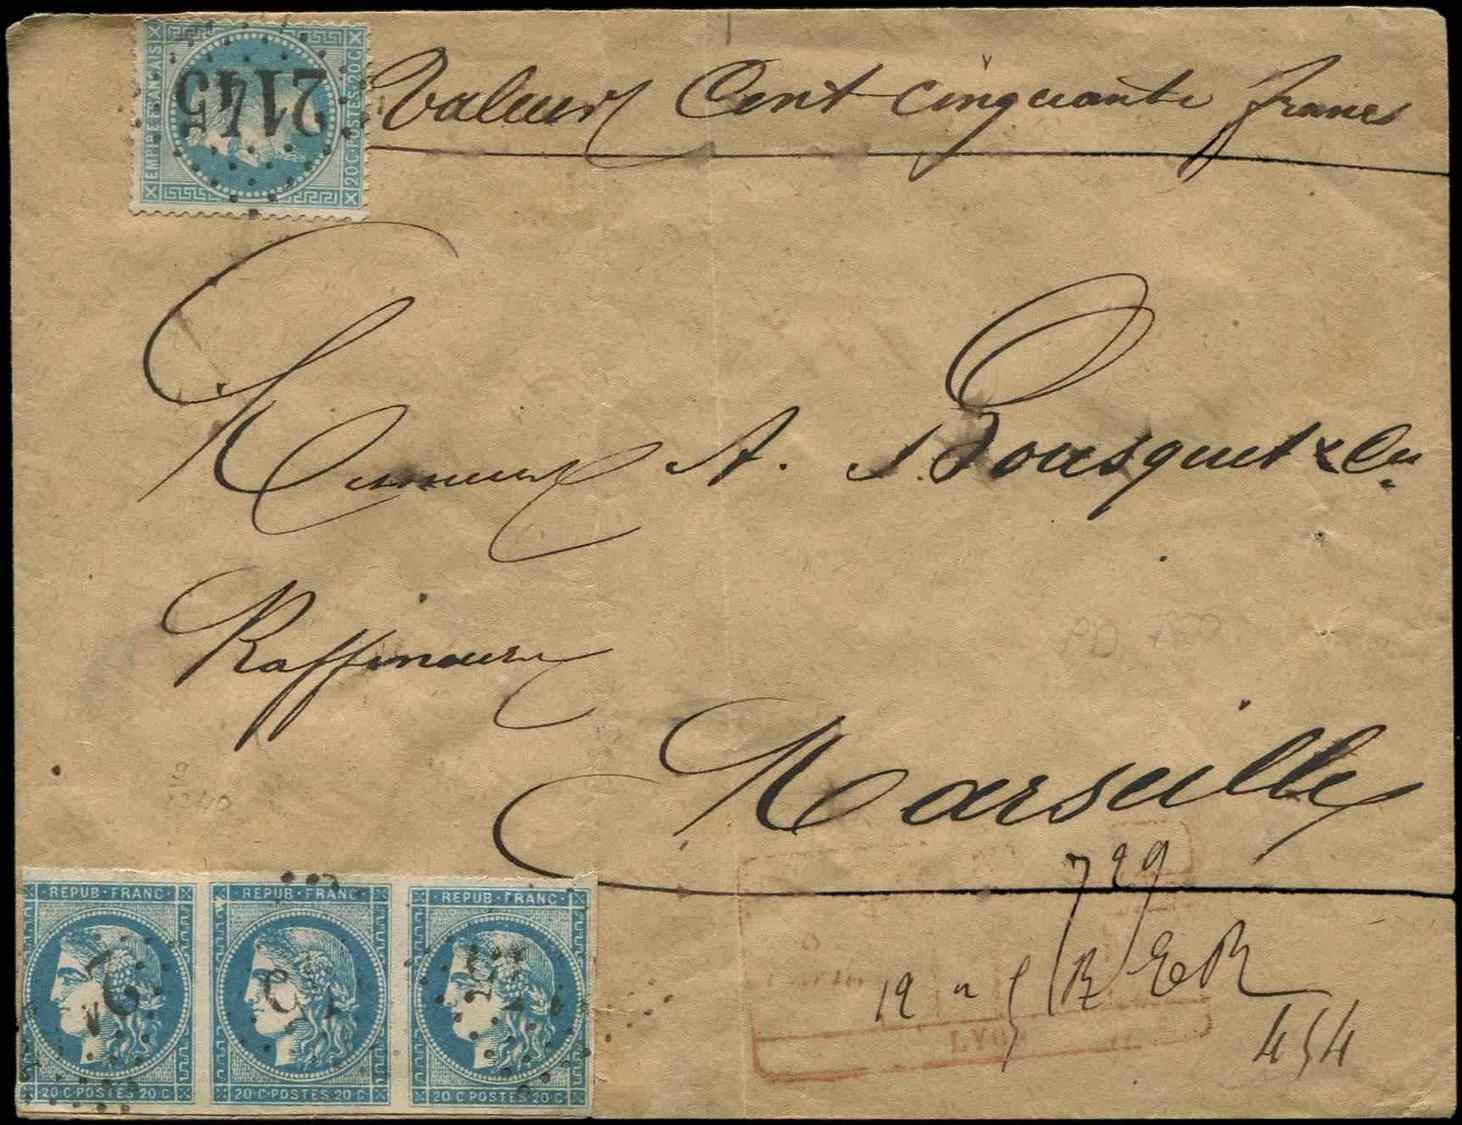 EMPIRE FRANÇAIS
20 C POSTES 20 C
2145
Valeur Cent cinquante francs
Messieurs A. Bousquet & Cie
Raffineurs
Marseille
729
454
LYON
REPUB · FRANC · REPUB · FRANC · REPUB · FRANC ·
20 · C · POSTES · 20 · C 20 · C · POSTES · 20 · C 20 · C · POSTES · 20 · C